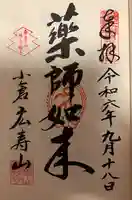 奉拝
令和六年九月十八日
薬師如来
小倉
広寿山